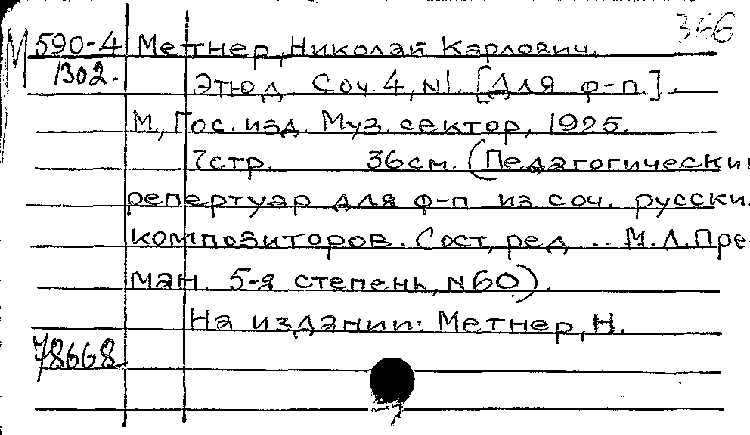 366
М 590-4 Метнер, Николай Карлович.
1302. Этюд. Соч. 4, N1. [Для ф-п].
М, Гос. изд. Муз. сектор, 1925.
7стр. 36см. (Педагогически
репертуар для ф-п из соч. русски
композиторов. Сост, ред .. М.Л.Пре
ман. 5-я степень, N60).
На издании: Метнер, Н.
78668